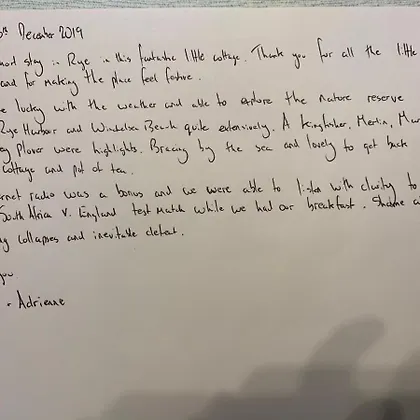 December 2019
stay in Rye in this fantastic little cottage. Thank you for all the little
and for making the place feel festive.
lucky with the weather and able to explore the nature reserve
Rye Harbour and Winchelsea Beach quite extensively. A Kingfisher, Merlin,
Plover were highlights. Bracing by the sea and lovely to get back
cottage and pot of tea.
radio was a bonus and we were able to listen with clarity to
South Africa v. England test match while we had our breakfast.
collapses and inevitable defeat.
- Adrienne